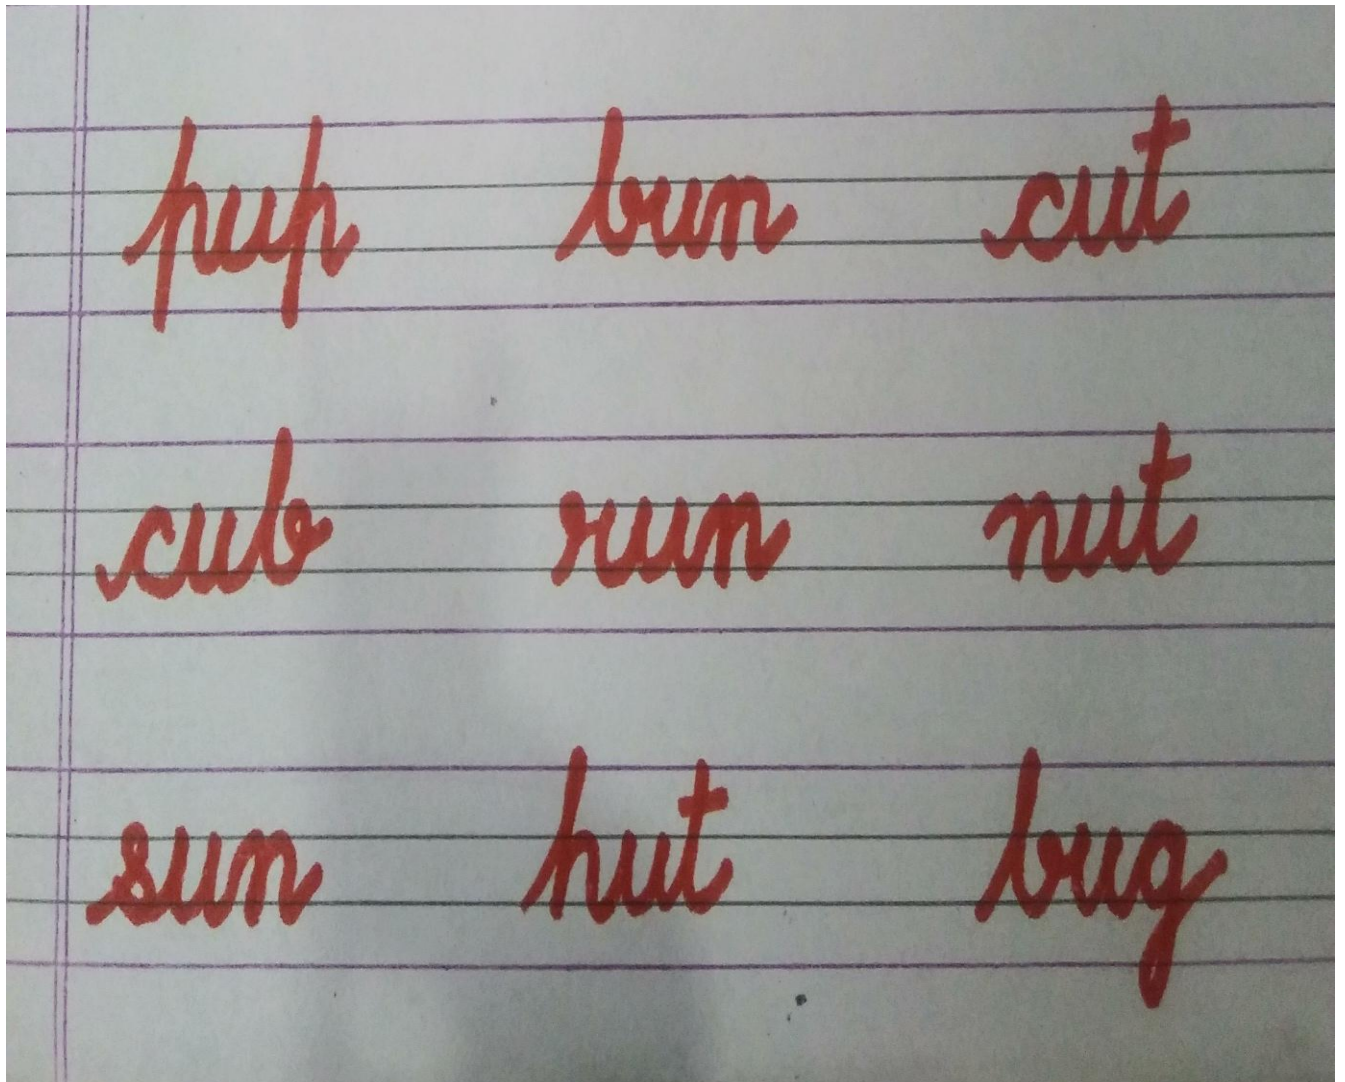 pup bun cut
cub run nut
sun hut bug